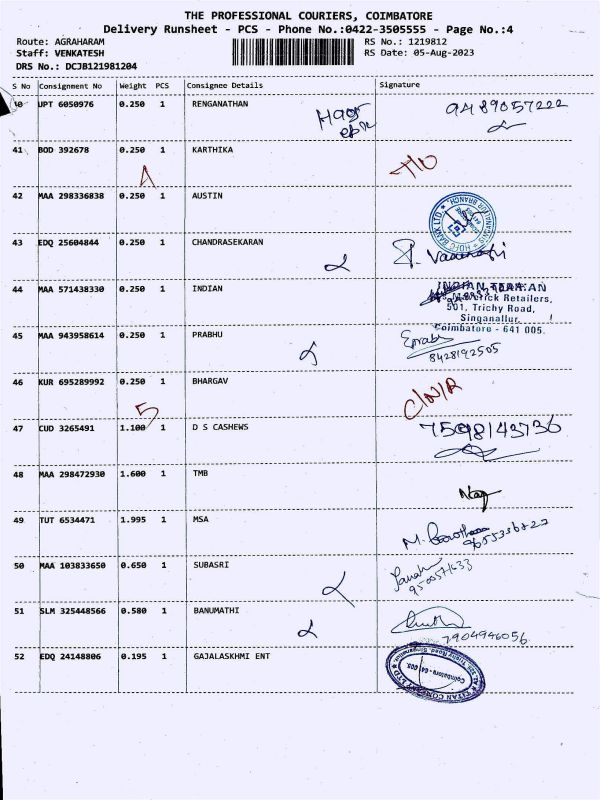 THE PROFESSIONAL COURIERS, COIMBATORE
Delivery Runsheet - PCS - Phone No.:0422-3505555 - Page No.:4
Route: AGRAHARAM RS No.: 1219812
Staff: VENKATESH RS Date: 05-Aug-2023
DRS No.: DCJB121981204
S No Consignment No Weight PCS Consignee Details Signature
40 UPT 6050976 0.250 1 RENGANATHAN 9489057222
41 BOD 392678 0.250 1 KARTHIKA
42 MAA 298336838 0.250 1 AUSTIN
HDFC BANK LTD
43 EDQ 25604844 0.250 1 CHANDRASEKARAN
44 MAA 571438330 0.250 1 INDIAN
Retailers,
501, Trichy Road,
Singanallur,
Coimbatore - 641 005.
45 MAA 943958614 0.250 1 PRABHU
8428192505
46 KUR 695289992 0.250 1 BHARGAV C/N/R
5
47 CUD 3265491 1.100 1 D S CASHEWS 7598143736
48 MAA 298472930 1.600 1 TMB
49 TUT 6534471 1.995 1 MSA
50 MAA 103833650 0.650 1 SUBASRI
51 SLM 325448566 0.580 1 BANUMATHI
7904946056
52 EDQ 24148806 0.195 1 GAJALASKHMI ENT
TITAN COMPANY LTD